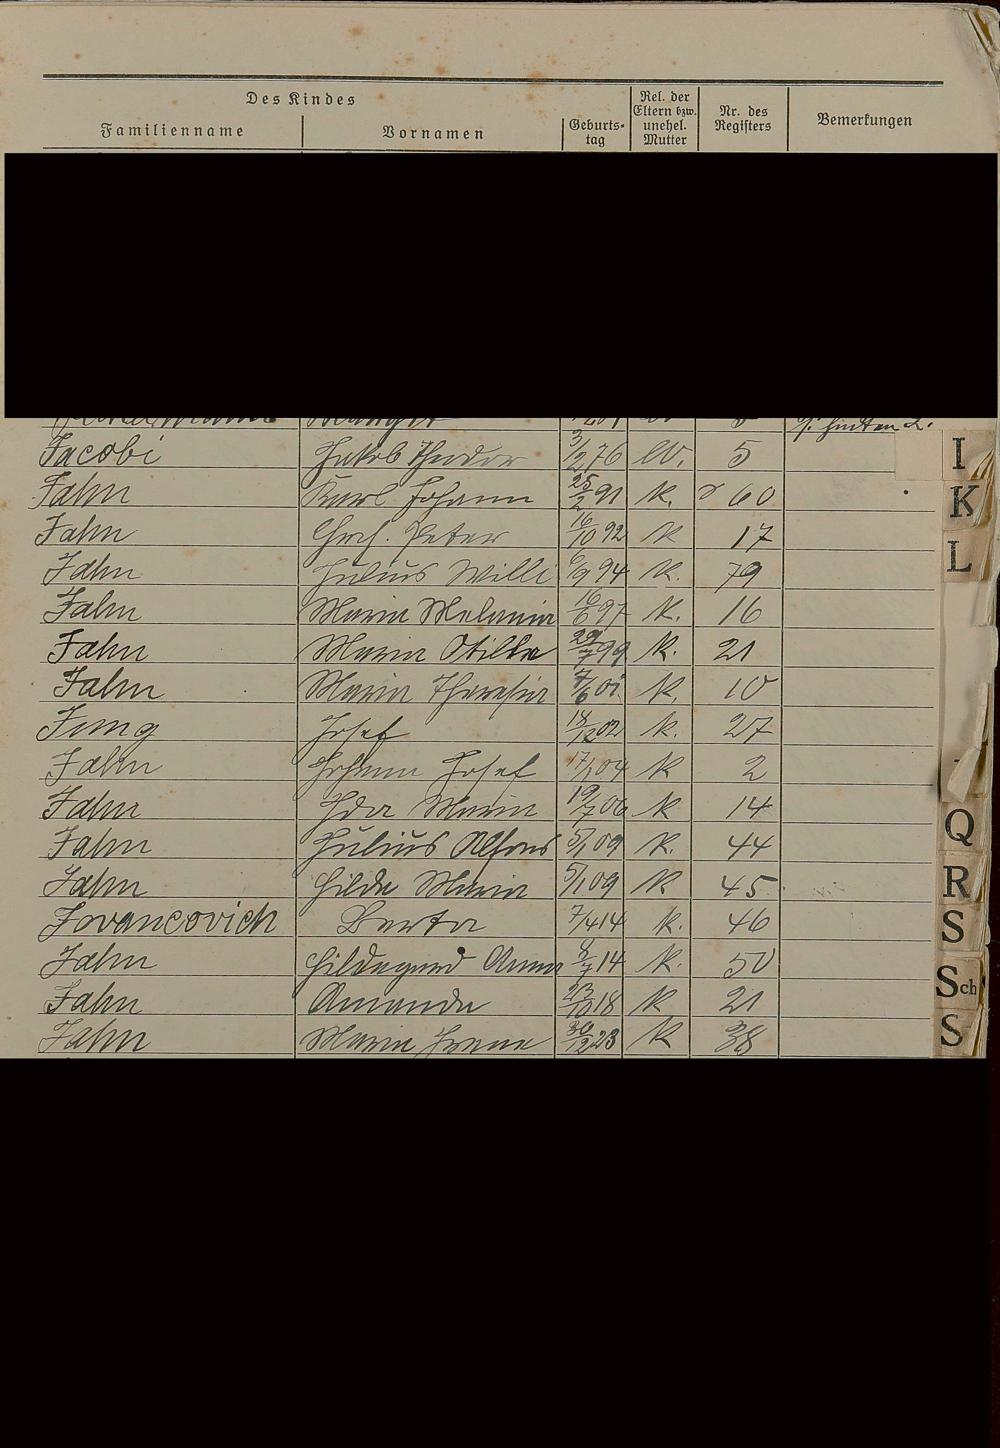 Des Kindes
Familienname Vornamen Geburts-tag Rel. der Eltern bzw. unehel. Mutter Nr. des Registers Bemerkungen
Jacobi Jakob Theodor 3/2 76 5
Jahn Karl Johann 25/2 91 K. 60
Jahn Peter 16/10 92 K 17
Jahn Julius Willi 94 K. 79
Jahn Maria Melania 16/6 97 K. 16
Jahn Maria 29/7 99 K. 21
Jahn Maria Theresia 7/6 01. K. 10
Jung Josef 18/12 02 K. 27
Jahn Johann Josef 17/1 04 K 2
Jahn Ida Maria 19/7 06 K 14
Jahn Julius Alfons 5/1 09 K. 44
Jahn Hilda Maria 5/1 09 K 45
Jovancovich Berta 7/4 14 K. 46
Jahn Hildegard Anna 8/7 14 K. 50
Jahn Amanda 23/10 18 K 21
Jahn Maria Irene 30/12 23 K 38
I
K
L
Q
R
S
Sch
S